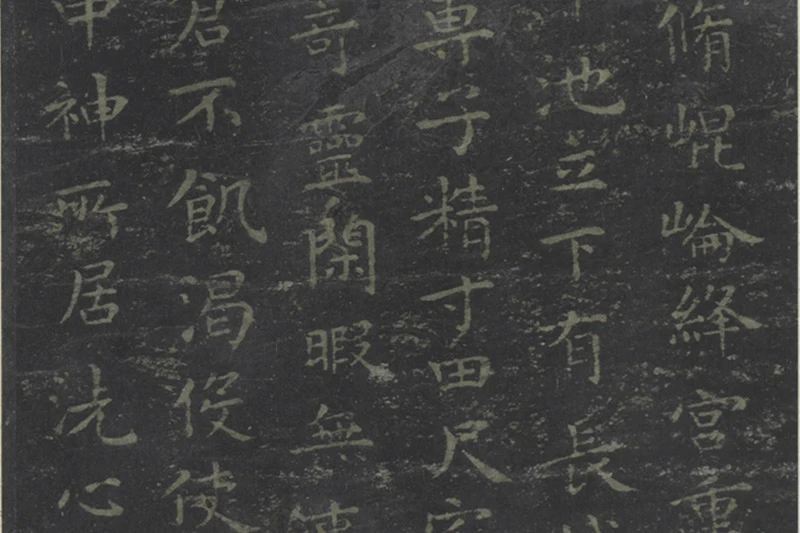 脩崐崘絳宮重
池立下有長
專子精寸田尺宅
奇靈閑暇無事
君不飢渴伇使
申神所居洗心